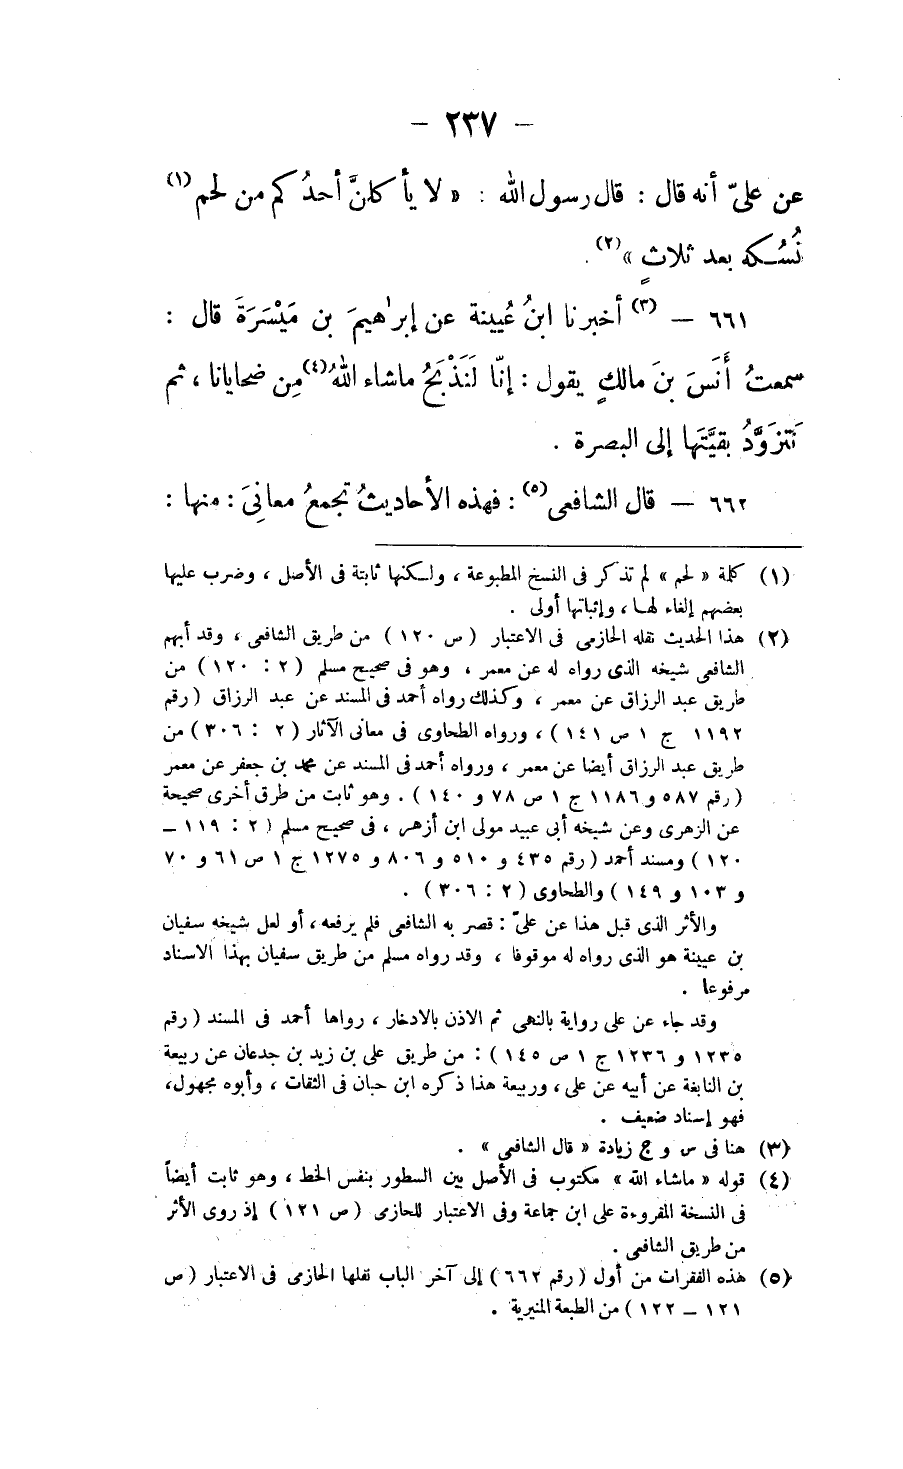 — ٢٣٧ —
عن علىّ أنه قال : قال رسول الله : « لا يأكلنَّ أحدُكم من لحم(١)
نُسُكه بعد ثلاثٍ »(٢) .
٦٦١ — (٣) أخبرنا ابنُ عُيينة عن إبرٰهيمَ بن مَيْسَرَةَ قال :
سمعتُ أَنَسَ بنَ مالكٍ يقول : إنّا لَنَذْبَحُ ماشاء اللهُ(٤) مِن ضحايانا ، ثم
نَتزَوَّدُ بقيَّتَها إلى البصرة .
٦٦٢ — قال الشافعى(٥) : فهذه الأحاديثُ تجمعُ معانِىَ : منها :
(١) كلمة « لحم » لم تذكر فى النسخ المطبوعة ، ولكنها ثابتة فى الأصل ، وضرب عليها
بعضهم إلغاء لها ، وإثباتها أولى .
(٢) هذا الحديث نقله الحازمى فى الاعتبار ( ص ١٢٠ ) من طريق الشافعى ، وقد أبهم
الشافعى شيخه الذى رواه له عن معمر ، وهو فى صحيح مسلم ( ٢ : ١٢٠ ) من
طريق عبد الرزاق عن معمر ، وكذلك رواه أحمد فى المسند عن عبد الرزاق ( رقم
١١٩٢ ج ١ ص ١٤١ ) ، ورواه الطحاوى فى معانى الآثار ( ٢ : ٣٠٦ ) من
طريق عبد الرزاق أيضا عن معمر ، ورواه أحمد فى المسند عن محمد بن جعفر عن معمر
( رقم ٥٨٧ و ١١٨٦ ج ١ ص ٧٨ و ١٤٠ ) . وهو ثابت من طرق أخرى صحيحة
عن الزهرى وعن شيخه أبى عبيد مولى ابن أزهر ، فى صحيح مسلم ( ٢ : ١١٩ —
١٢٠ ) ومسند أحمد ( رقم ٤٣٥ و ٥١٠ و ٨٠٦ و ١٢٧٥ ج ١ ص ٦١ و ٧٠
و ١٠٣ و ١٤٩ ) والطحاوى ( ٢ : ٣٠٦ ) .
والأثر الذى قبل هذا عن علىّ : قصر به الشافعى فلم يرفعه ، أو لعل شيخه سفيان
بن عيينة هو الذى رواه له موقوفا ، وقد رواه مسلم من طريق سفيان بهذا الاسناد
مرفوعا .
وقد جاء عن على رواية بالنهى ثم الاذن بالادخار ، رواها أحمد فى المسند ( رقم
١٢٣٥ و ١٢٣٦ ج ١ ص ١٤٥ ) : من طريق على بن زيد بن جدعان عن ربيعة
بن النابغة عن أبيه عن على ، وربيعة هذا ذكره ابن حبان فى الثقات ، وأبوه مجهول ،
فهو إسناد ضعيف .
(٣) هنا فى س و ج زيادة « قال الشافعى » .
(٤) قوله « ماشاء الله » مكتوب فى الأصل بين السطور بنفس الخط ، وهو ثابت أيضاً
فى النسخة المقروءة على ابن جماعة وفى الاعتبار للحازمى ( ص ١٢١ ) إذ روى الأثر
من طريق الشافعى .
(٥) هذه الفقرات من أول ( رقم ٦٦٢ ) إلى آخر الباب نقلها الحازمى فى الاعتبار ( ص
١٢١ — ١٢٢ ) من الطبعة المنيرية .